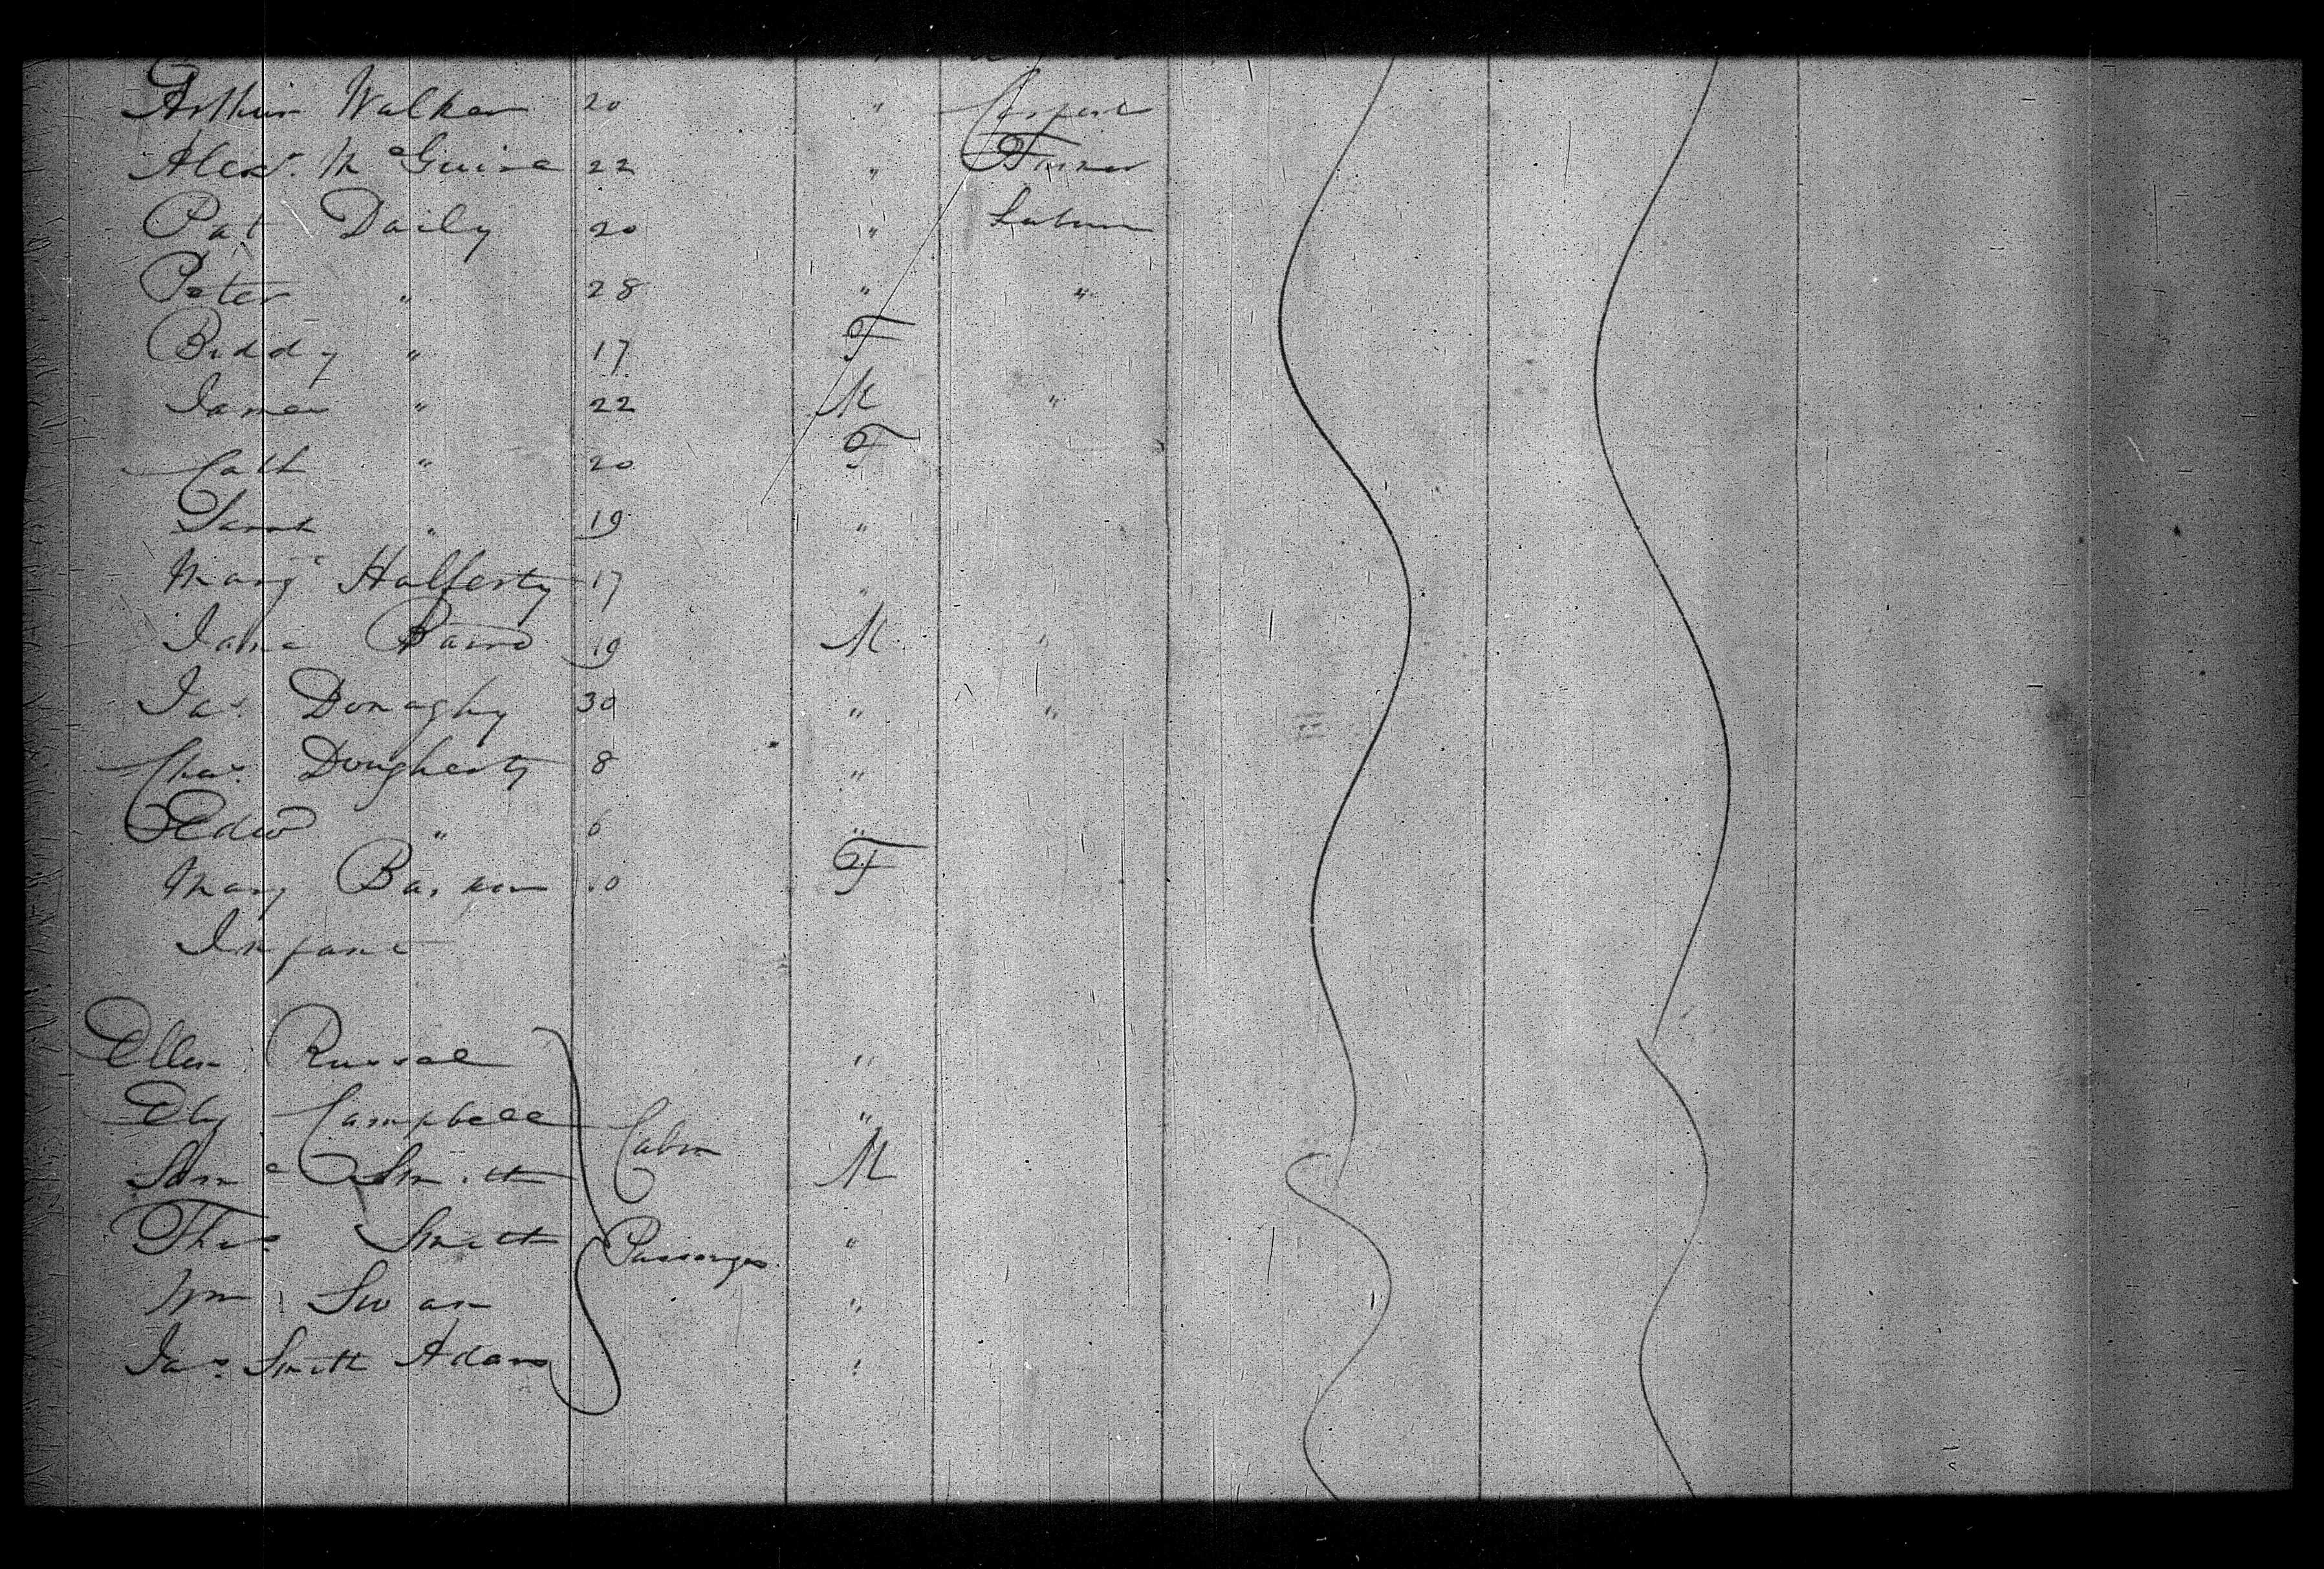 Arthur Walker 20 "
Alexr. McGuire 22 " Farmer
Pat Daily 20 " Labour
Peter " 28 " "
Biddy " 17 F
James " 22 M "
Cath " 20 F
Sarah " 19 "
Margt Halferty 17 "
Baird 19 M "
Jas. Donaghy 30 " "
Chas. Dougherty 8 "
Edwd " 6 "
Mary 10 F
Infant
Ellen Russel "
Campbell "
Cabin
Saml Smith M
Thos. Smith "
Passengers
Wm Swan "
Jas. Smith Adams "